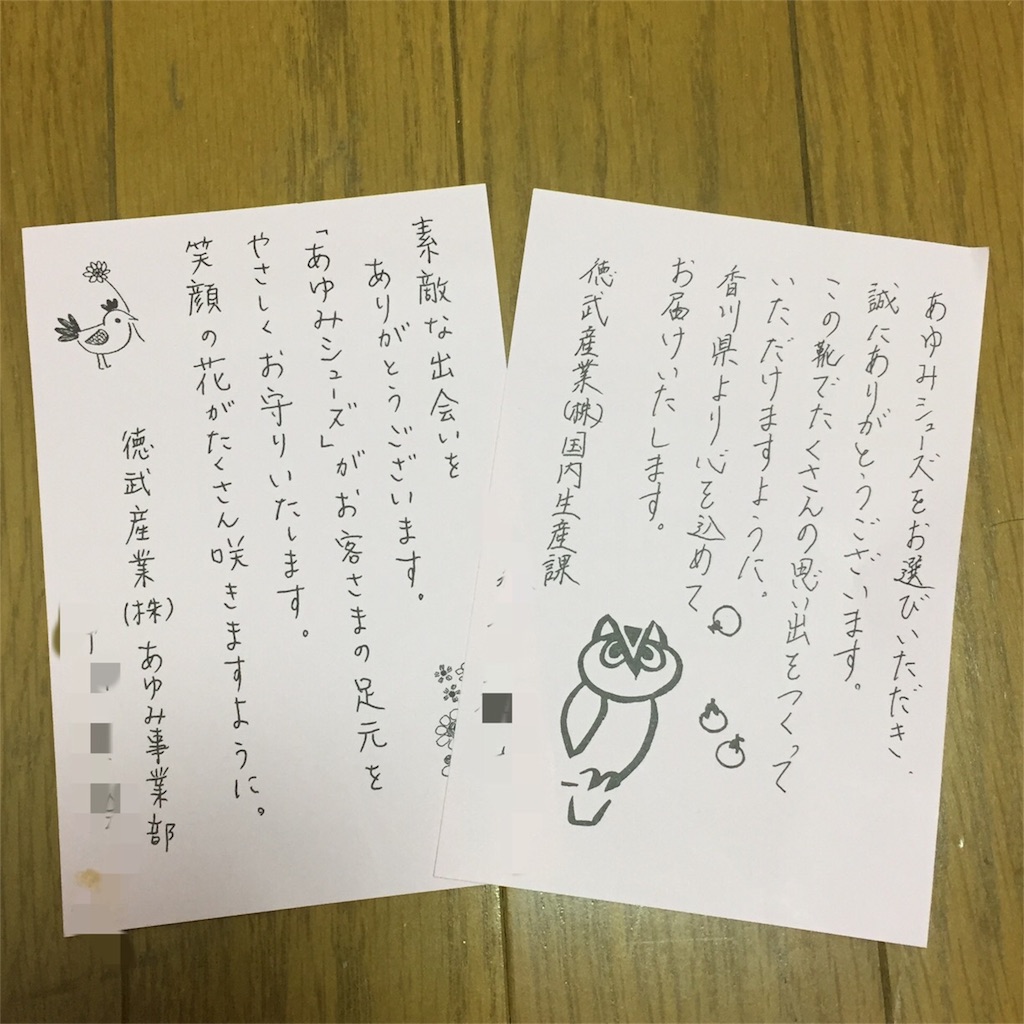 素敵な出会いを
ありがとうございます。
「あゆみシューズ」がお客さまの足元を
やさしくお守りいたします。
笑顔の花がたくさん咲きますように。
徳武産業(株)あゆみ事業部
あゆみシューズをお選びいただき、
誠にありがとうございます。
この靴でたくさんの思い出をつくって
いただけますように。
香川県より心を込めて
お届けいたします。
徳武産業(株)国内生産課